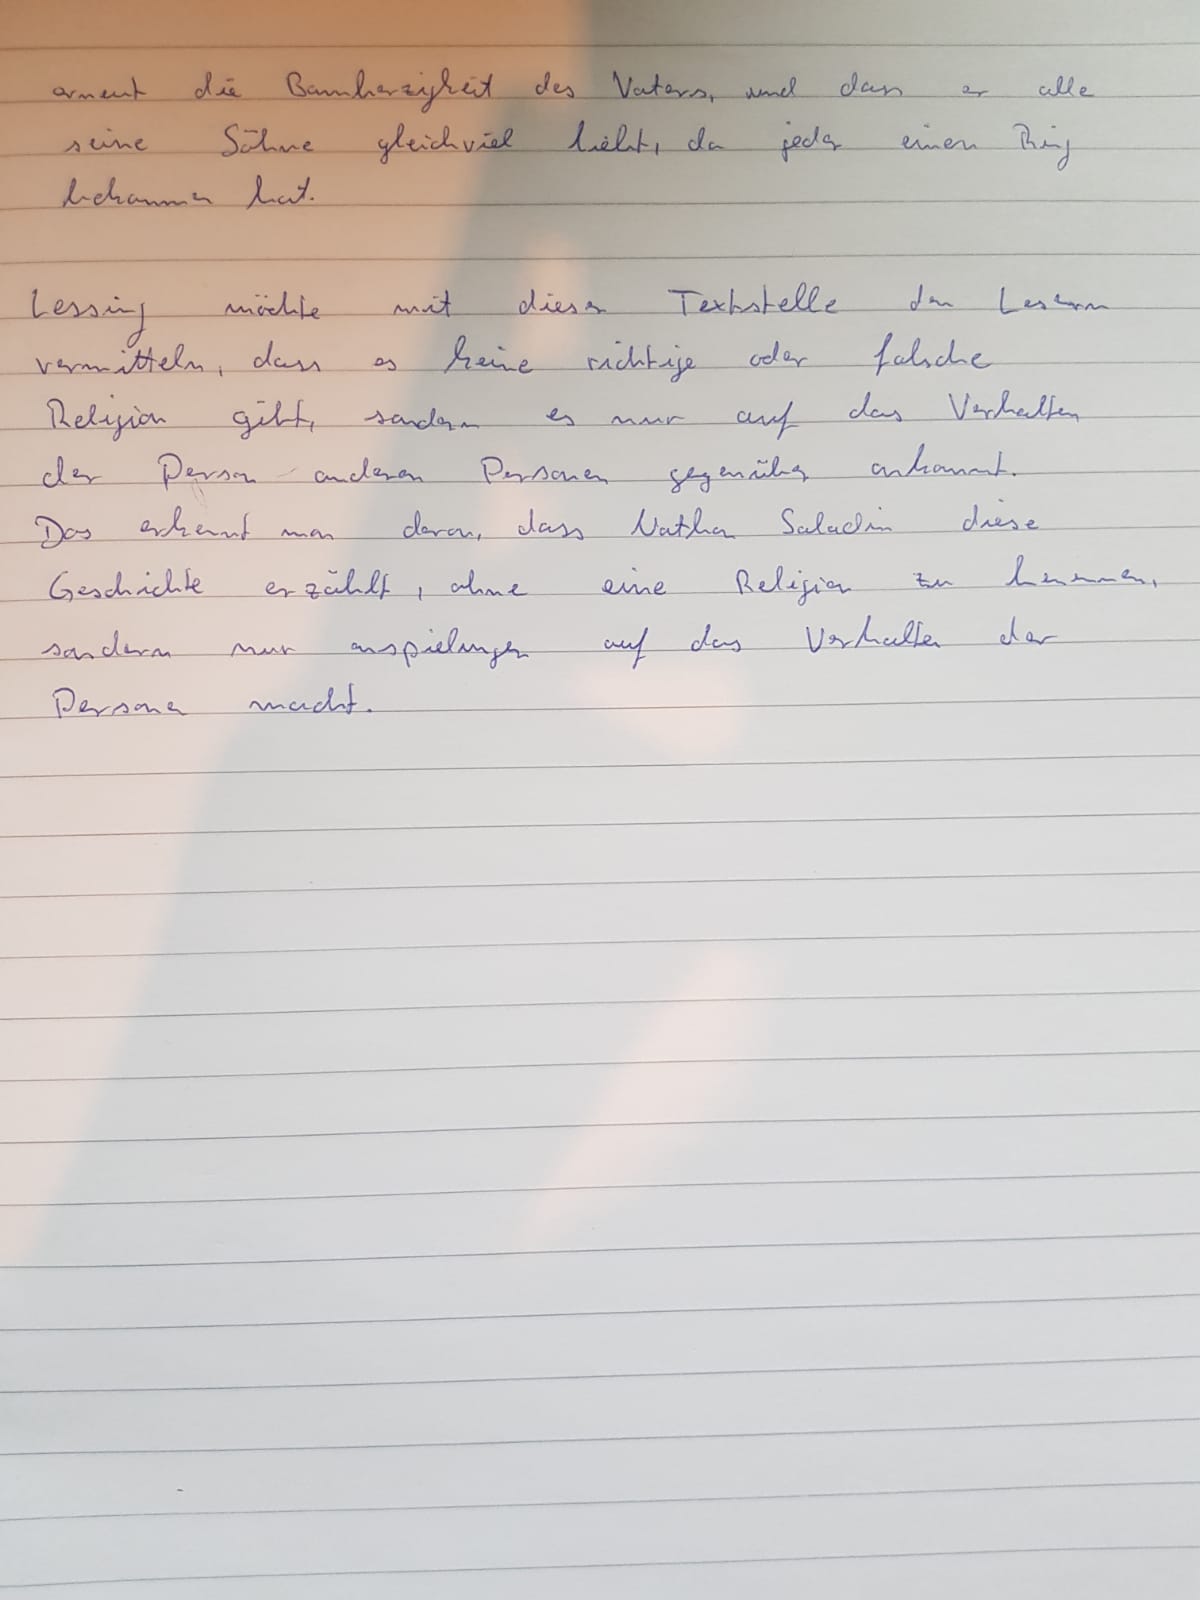 erneut die Barmherzigkeit des Vaters, und dass er alle
seine Söhne gleichviel liebt, da jeder einen Ring
bekommen hat.
Lessing möchte mit dieser Textstelle den Lesern
vermitteln, dass es keine richtige oder falsche
Religion gibt, sondern es nur auf das Verhalten
der Person anderen Personen gegenüber ankommt.
Das erkennt man daran, dass Nathan Saladin diese
Geschichte erzählt, ohne eine Religion zu
sondern nur anspielungen auf das Verhalten der
Personen macht.